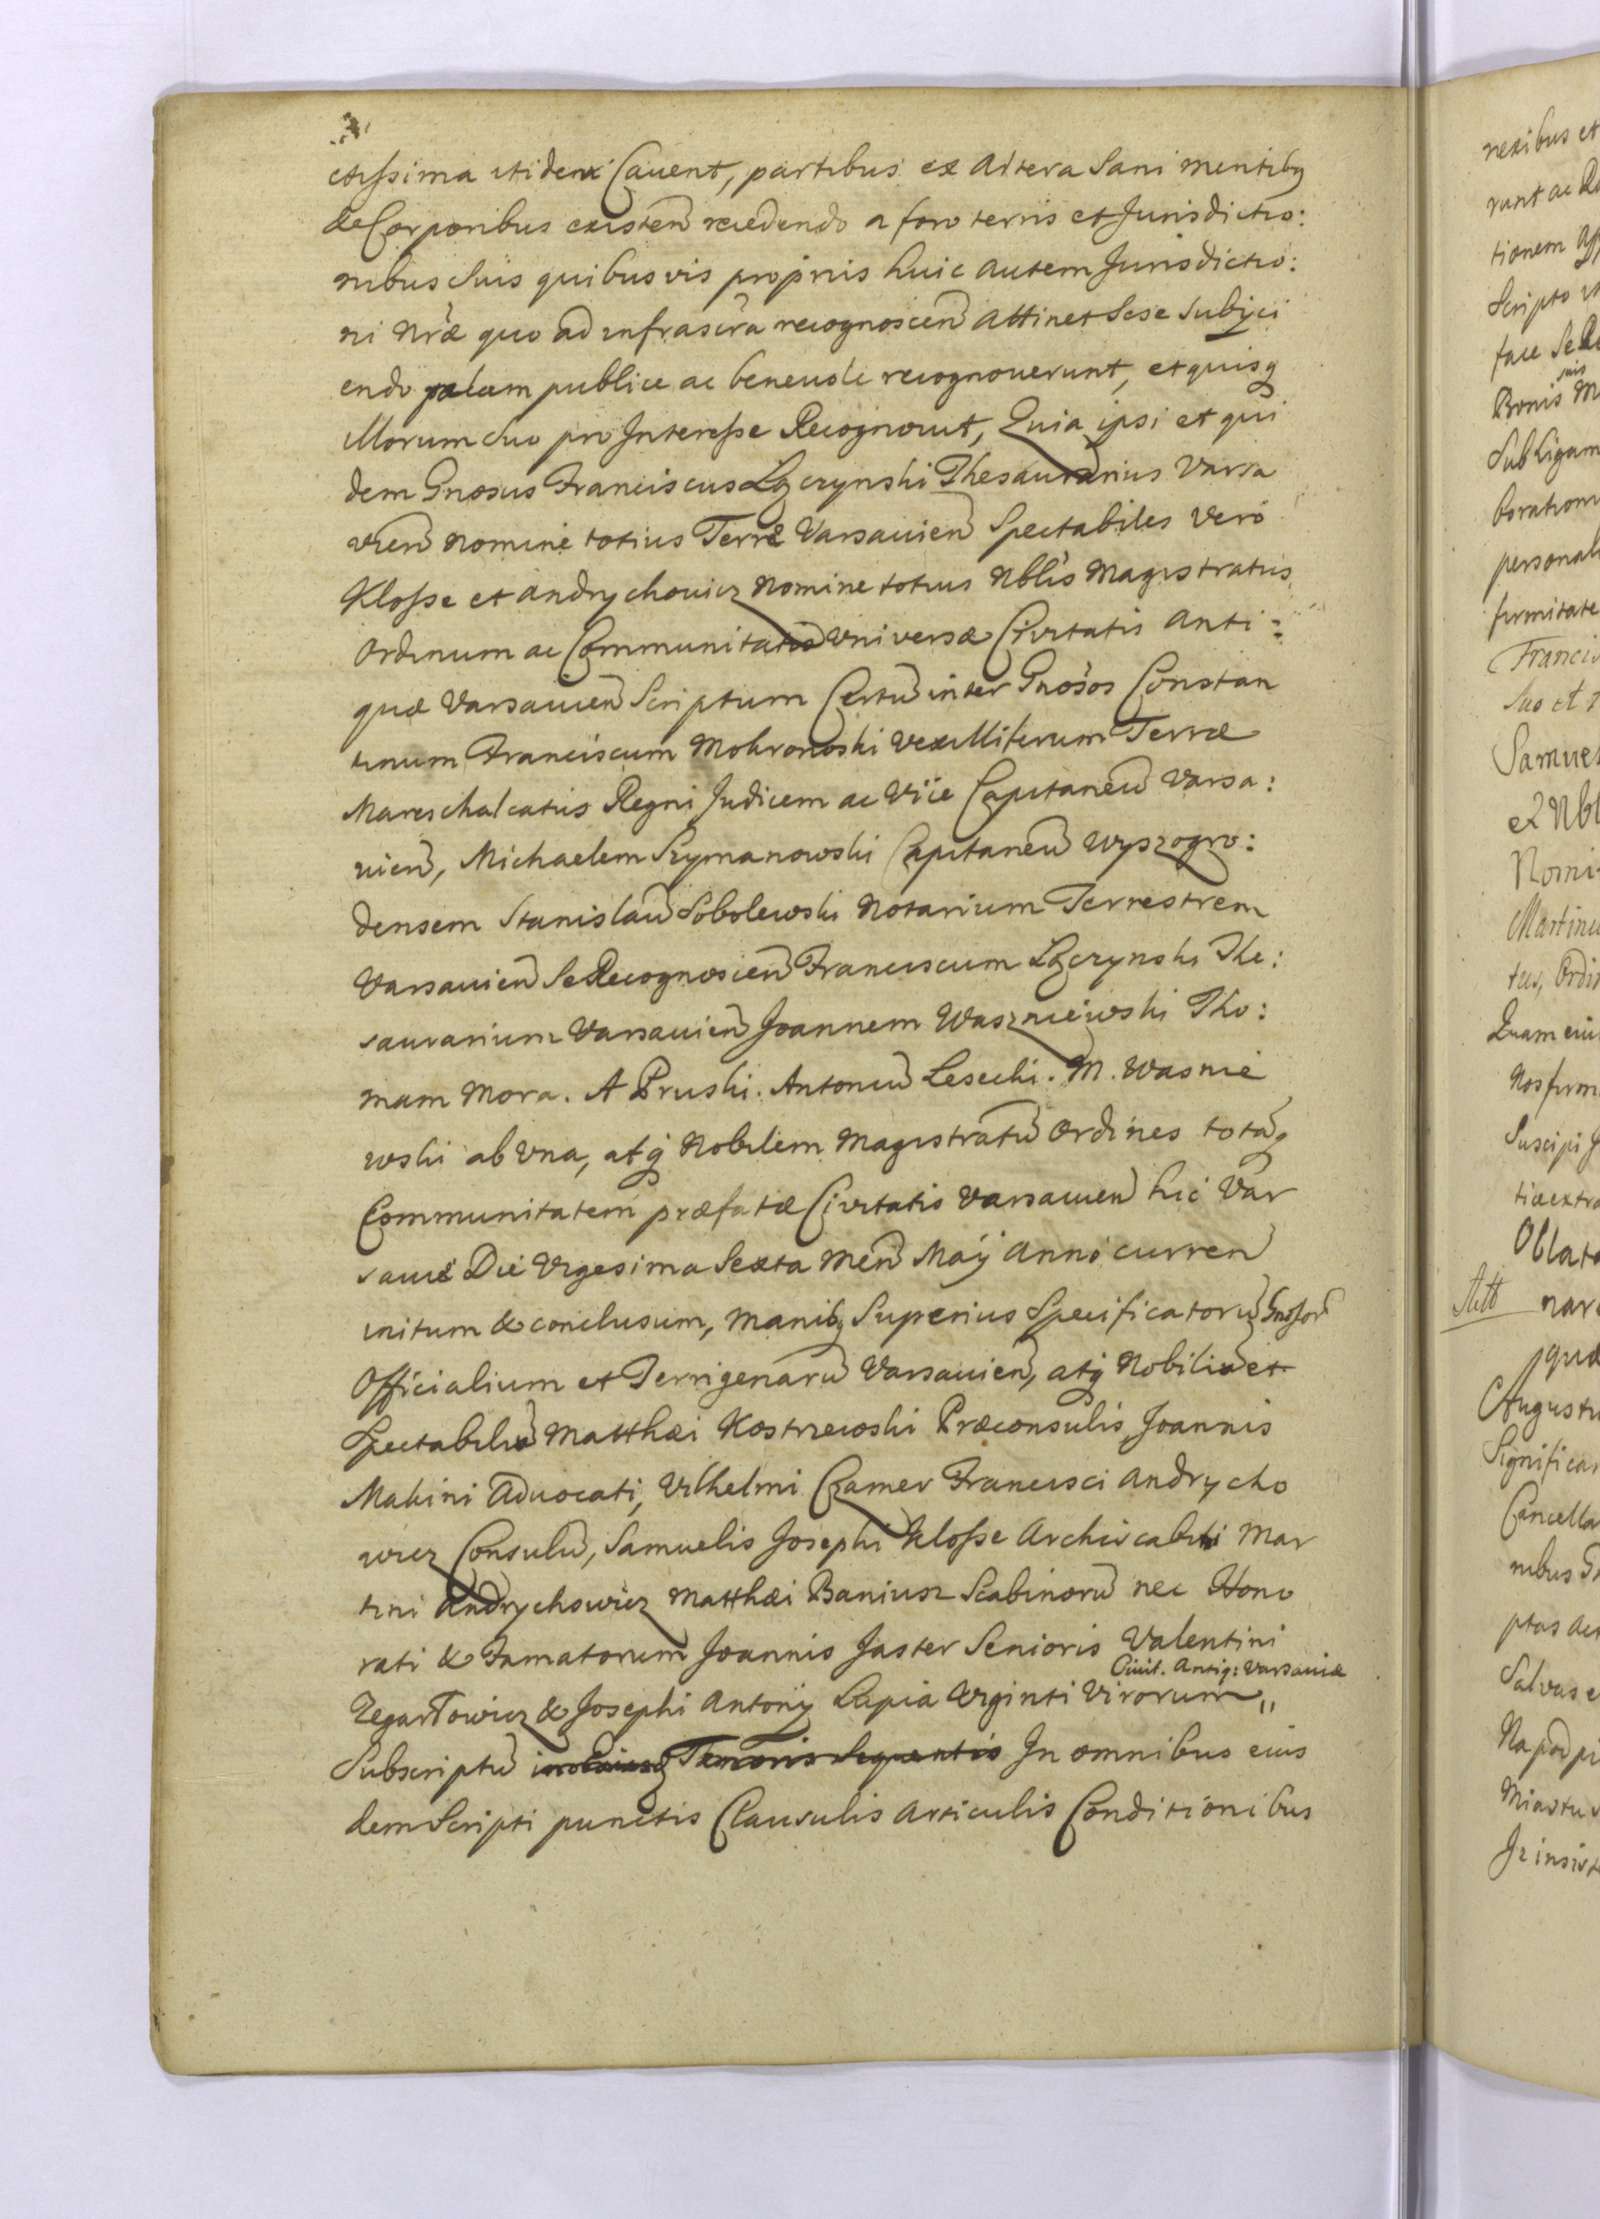 ctissima itidem Cavent, partibus ex altera Sani mentibq
& Corporibus existen recedendo a foro terris et Jurisdictio:
nibus Suis quibusvis proprijs huic autem Jurisdictio:
ni Nræ quo ad infrascra recognoscen attinet Sese Subijci
endo palam publice ac benevole recognoverunt, et quisq
illorum Suo pro Interesse Recognovit, Quia ipsi et qui
dem Gnosus Franciscus Łączynski Thesaurarius Varsa
vien nomine totius Terræ Varsavien Spectabiles Vero
Klosse et Andrychowicz Nomine totius Nblis Magistratus
Ordinum ac Communitatis Universæ Civitatis Anti:
quæ Varsavien Scriptum Certu inter Gnosos Constan
tinum Franciscum Mokronoski Vexilliferum Terræ
Mareschalcatus Regni Judicem ac Vice Capitaneu Varsa:
vien, Michaelem Szymanowski Capitaneu Wyszogro:
densem Stanislau Sobolewski Notarium Terrestrem
Varsavien Se Recognoscen Franciscum Łączynski The:
saurarium Varsavien Joannem Waszniewski Tho:
mam Mora. A Pruski. Antoniu Lesecki. M. Wasnie
wski ab Una, atq Nobilem Magistratu Ordines totaq
Communitatem præfatæ Civitatis Varsavien hic Var
saviæ Die Vigesima Sexta Men Maij Anno curren
initum & conclusum, Manibq Superius Specificatoru Gnosor
Officialium et Terrigenaru Varsavien, atq Nobiliu et
Spectabiliu Matthæi Kostrzewski Præconsulis Joannis
Makini Advocati, Vilhelmi Czamer Francisci Andrycho
wicz Consulu, Samuelis Josephi Klosse Archiscabini Mar
tini Andrychowicz Matthæi Baniusz Scabinoru nec Hono
rati & Famatorum Joannis Jaster Senioris Valentini
Civit. Antiq: Varsaviæ
Zegartowicz & Josephi Antonij Lupia Viginti Virorum "
Subscriptu Tenoris Sequentis In omnibus eius
dem Scripti punctis Clausulis Articulis Conditionibus
nexibus et
runt ac
tionem
Scripto
face Se
suis
Bonis
Sub Ligam
boration
personal
firmitate
Franci
Suo et
Samuel
et Nbl
Nomi
Martin
tus, Ordi
Quam
Nos firm
Suscipi
tiæ extra
Oblat
nar
quæ
Augustu
Significa
Cancella
nibus
ptas
Salvas
Na podpi
Miastu
Iż insist